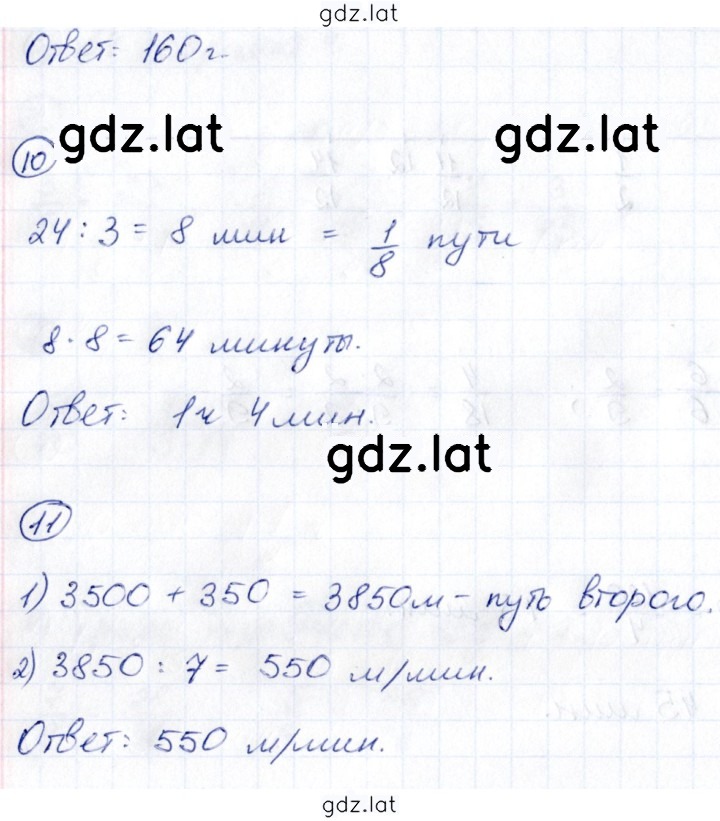 gdz.lat
Ответ: 160 г.
gdz.lat gdz.lat
10
24 : 3 = 8 мин = 1/8 пути
8 · 8 = 64 минуты.
Ответ: 1ч 4мин.
gdz.lat
11
1) 3500 + 350 = 3850м - путь второго.
2) 3850 : 7 = 550 м/мин.
Ответ: 550 м/мин.
gdz.lat